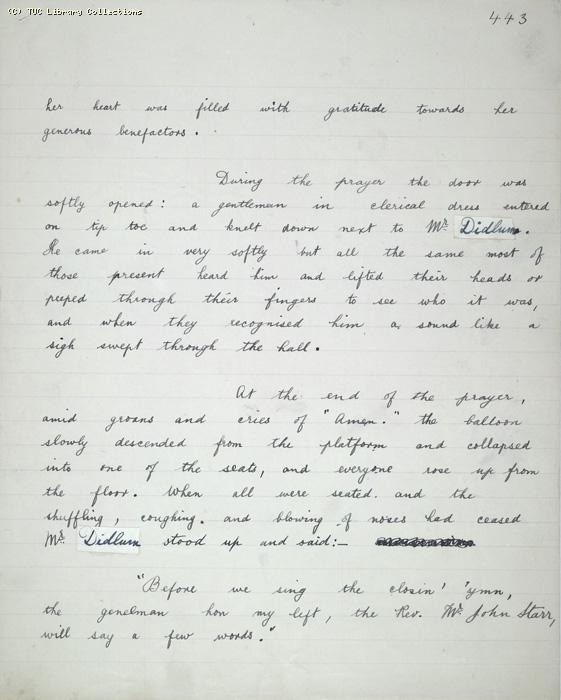 (C) TUC Library Collections
443
her heart was filled with gratitude towards her
generous benefactors.
During the prayer the door was
softly opened: a gentleman in clerical dress entered
on tip toe and knelt down next to Mr Didlum.
He came in very softly but all the same most of
those present heard him and lifted their heads or
peeped through their fingers to see who it was,
and when they recognised him a sound like a
sigh swept through the hall.
At the end of the prayer,
amid groans and cries of "Amen." the balloon
slowly descended from the platform and collapsed
into one of the seats, and everyone rose up from
the floor. When all were seated. and the
shuffling, coughing. and blowing of noses had ceased
Mr Didlum stood up and said:—
"Before we sing the closin' 'ymn,
the genelman hon my left, the Rev. Mr John Starr,
will say a few words."